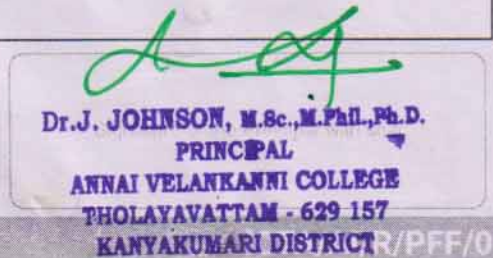 Dr.J. JOHNSON, M.Sc.,M.Phil.,Ph.D.
PRINCIPAL
ANNAI VELANKANNI COLLEGE
THOLAYAVATTAM - 629 157
KANYAKUMARI DISTRICT
R/PFF/0